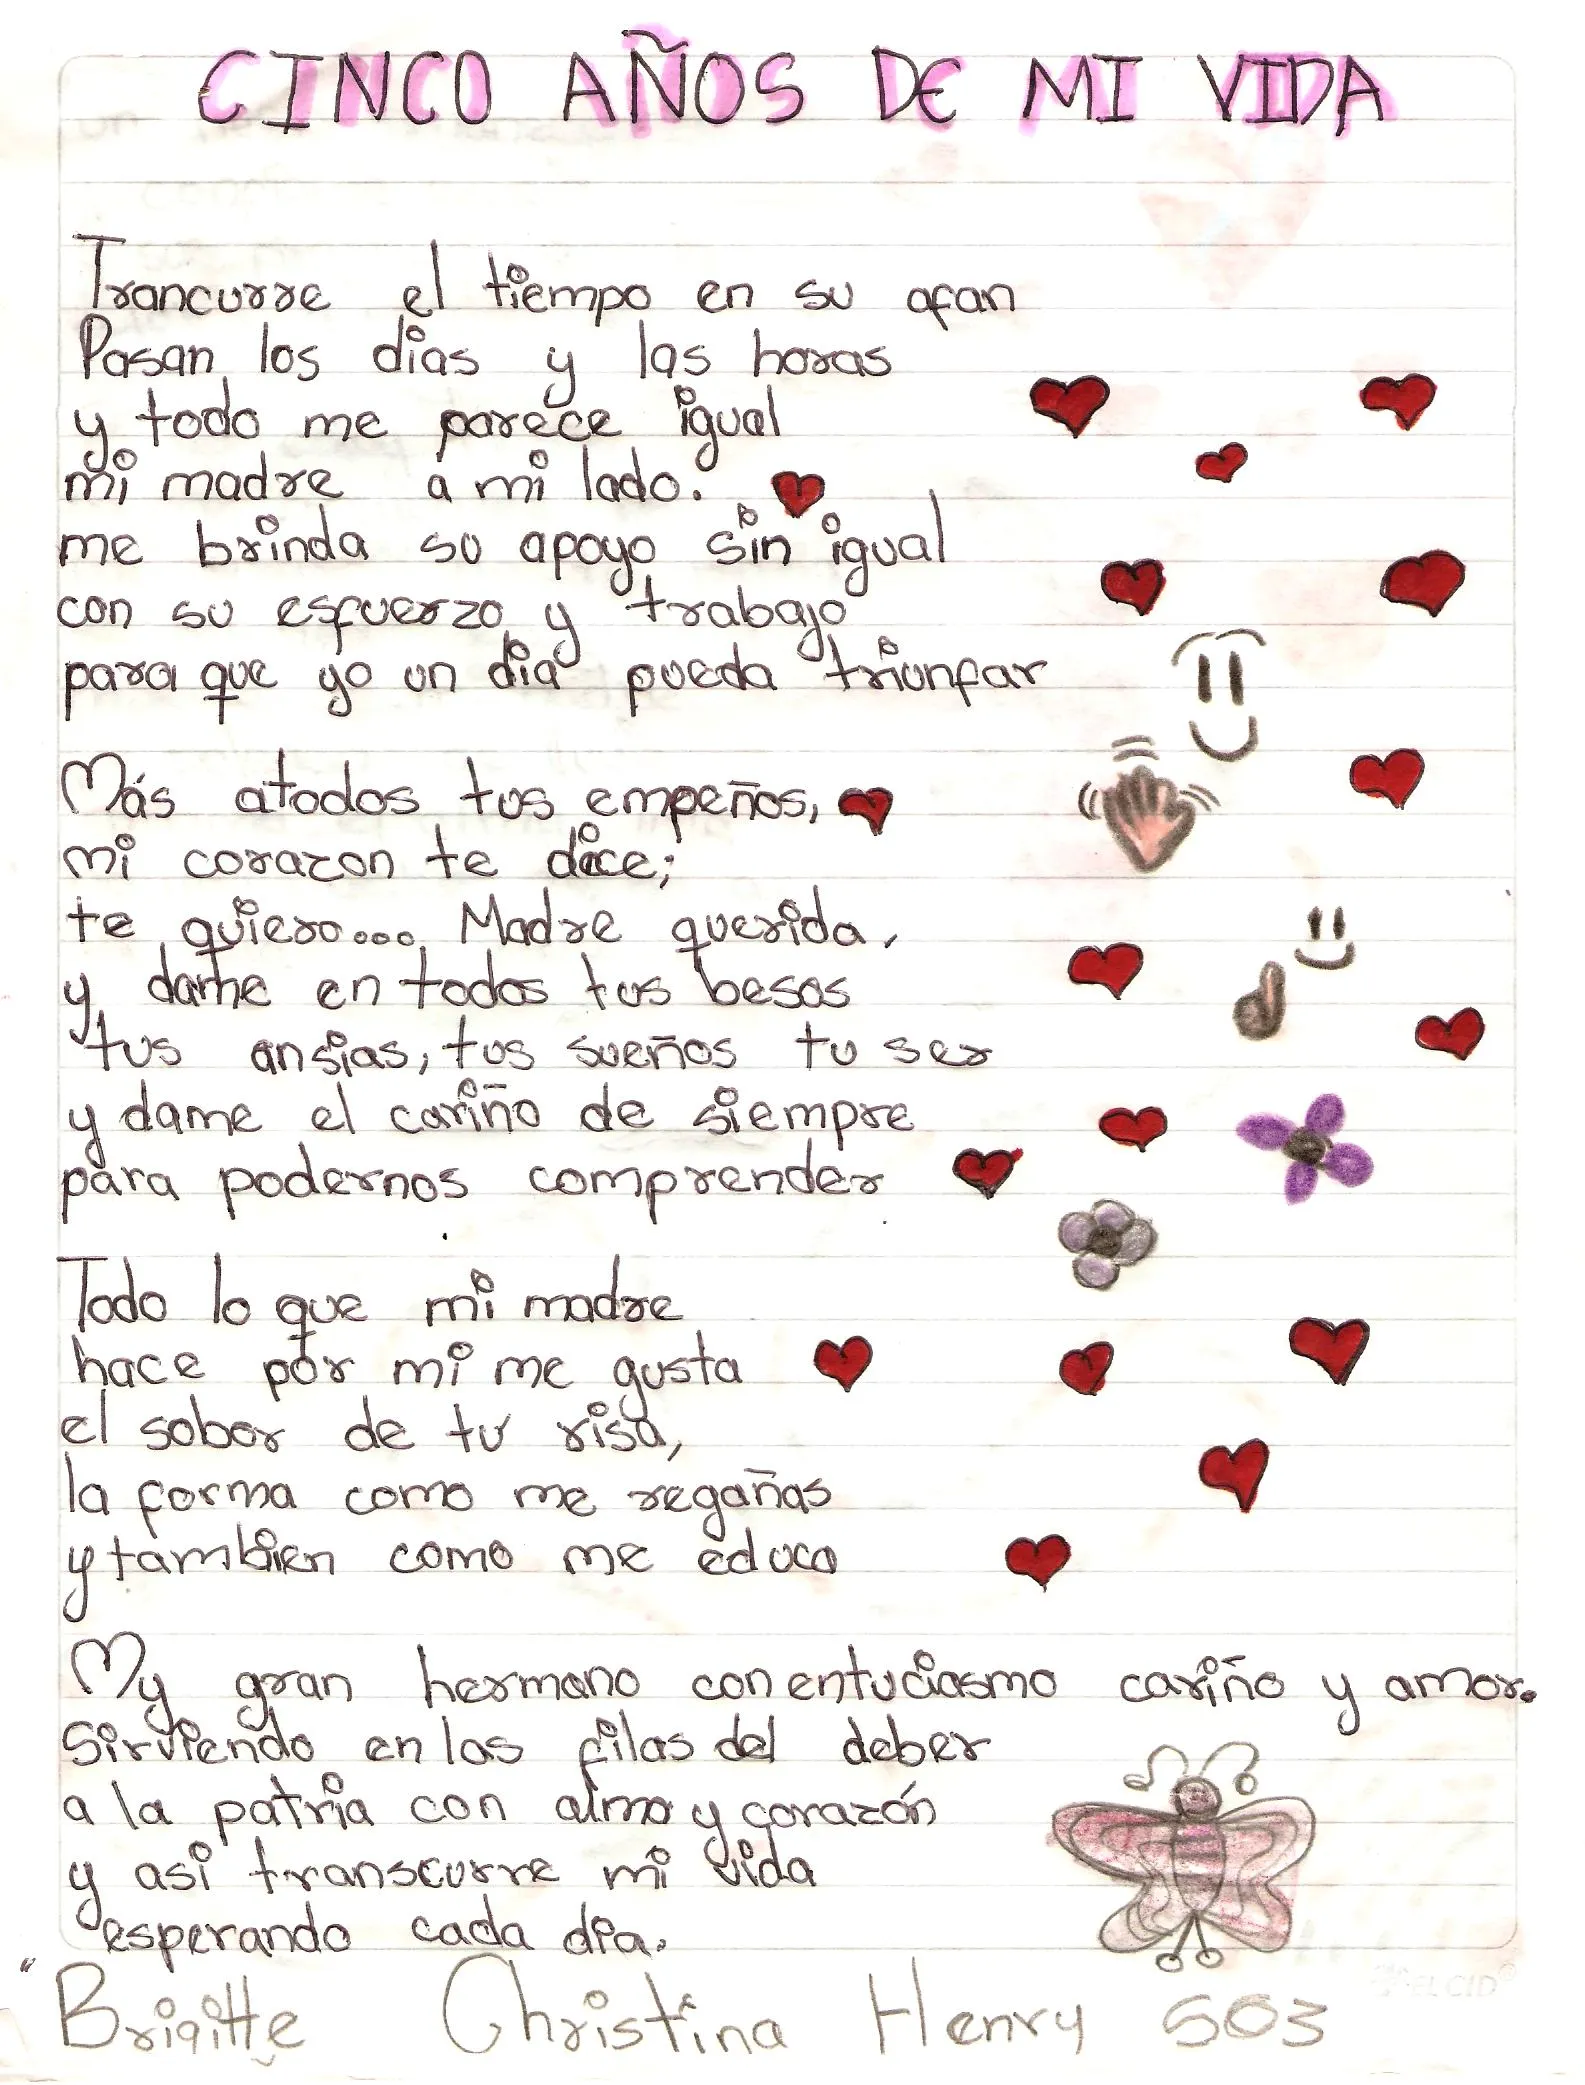 CINCO AÑOS DE MI VIDA
Trancurre el tiempo en su afan
Pasan los dias y las horas
y todo me parece igual
mi madre a mi lado.
me brinda su apoyo sin igual
con su esfuerzo y trabajo
para que yo un dia pueda triunfar
Más atodos tus empeños,
mi corazon te dice;
te quiero.... Madre querida,
y dame en todos tus besos
tus ansias, tus sueños tu ser
y dame el cariño de siempre
para podernos comprender
Todo lo que mi madre
hace por mi me gusta
el sobor de tu risa,
la forma como me regañas
y tambien como me educa
My gran hermano con entuciasmo cariño y amor.
Sirviendo en las filas del deber
a la patria con alma y corazón
y asi transcurre mi vida
esperando cada dia.
EL CID
Brigitte Christina Henry 503